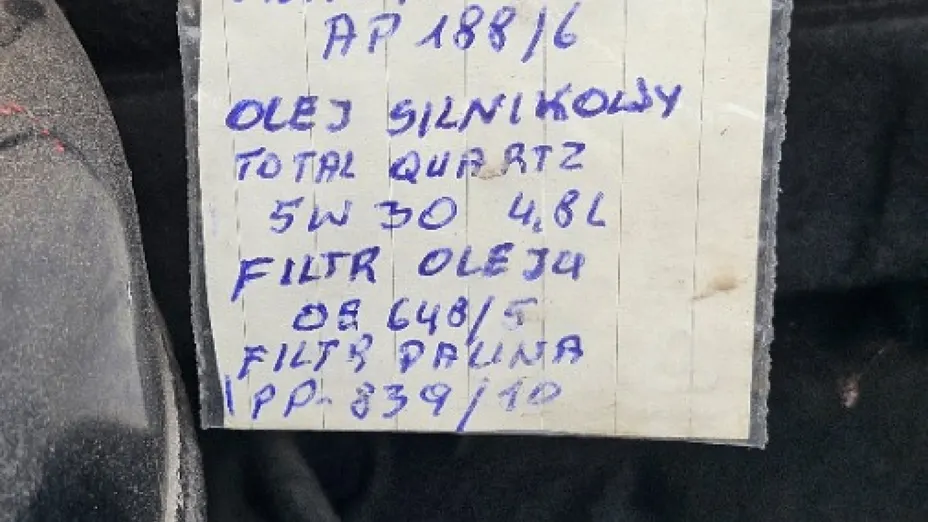 AP 188/6
OLEJ SILNIKOWY
TOTAL QUARTZ
5W 30 4,8L
FILTR OLEJU
OE 648/5
FILTR PALIWA
PP-839/10